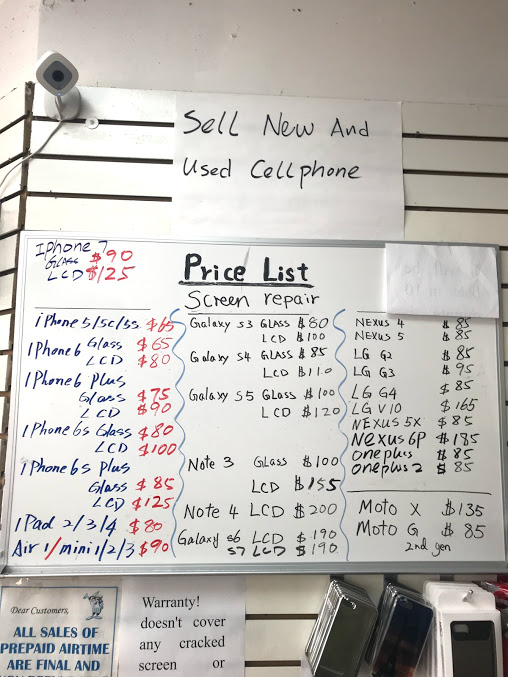 Sell New And
Used Cellphone
Iphone 7
Glass $90
LCD $125
Price List
Screen repair
iPhone 5/5c/5s $65
iPhone6 Glass $65
LCD $80
iPhone6 Plus
Glass $75
LCD $90
iPhone6s Glass $80
LCD $100
iPhone6s Plus
Glass $85
LCD $125
iPad 2/3/4 $80
Air 1/mini 1/2/3 $90
Galaxy S3 GLASS $80
LCD $100
Galaxy S4 GLASS $85
LCD $110
Galaxy S5 GLASS $100
LCD $120
Note 3 Glass $100
LCD $155
Note 4 LCD $200
Galaxy S6 LCD $190
S7 LCD $190
NEXUS 4 $85
NEXUS 5 $85
LG G2 $85
LG G3 $95
LG G4 $85
LG V10 $165
NEXUS 5X $85
NEXUS 6P $185
oneplus $85
oneplus 2 $85
MOTO X $135
MOTO G $85
2nd gen
Dear Customers,
ALL SALES OF
PREPAID AIRTIME
ARE FINAL AND
Warranty!
doesn't cover
any cracked
screen or